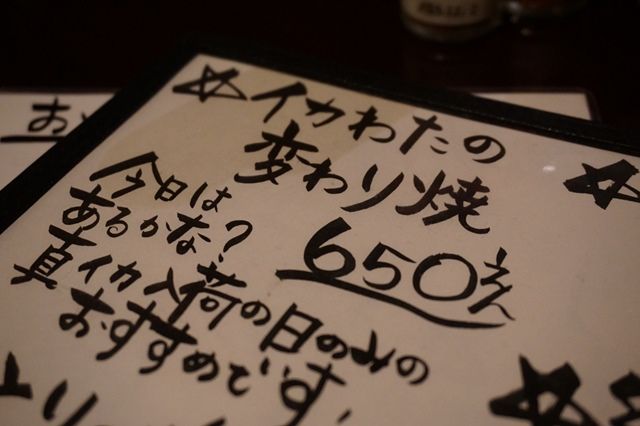 ☆イカわたの
変わり焼
650えん
今日は
あるかな?
真イカ入荷の日のみの
おすすめです。
お